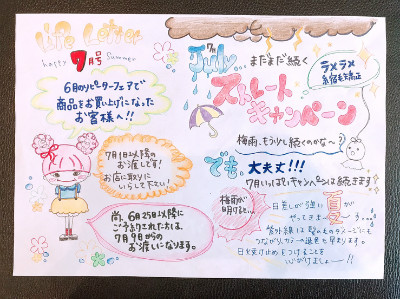 Life Letter
happy 7月号 Summer
6月のリピーターフェアで
商品をお買上げになった
お客様へ!!
7月1日以降の
お渡しです!
お店に取りに
いらして下さい!
尚、6月25日以降に
ご予約された方は、
7月9日からの
お渡しになります。
7月
July... まだまだ続く
ストレート
キャンペーン
ラメラメ
縮毛矯正
梅雨、もう少し続くのかな〜?
でも、大丈夫!!!
7月いっぱいキャンペーンは続きます
梅雨が
明けると…
日差しが強い夏が
やってきま〜す…
紫外線は髪の毛のダメージにも
つながり、カラーの退色も早まります。
日やけ止めをつけることを
心がけましょー!!